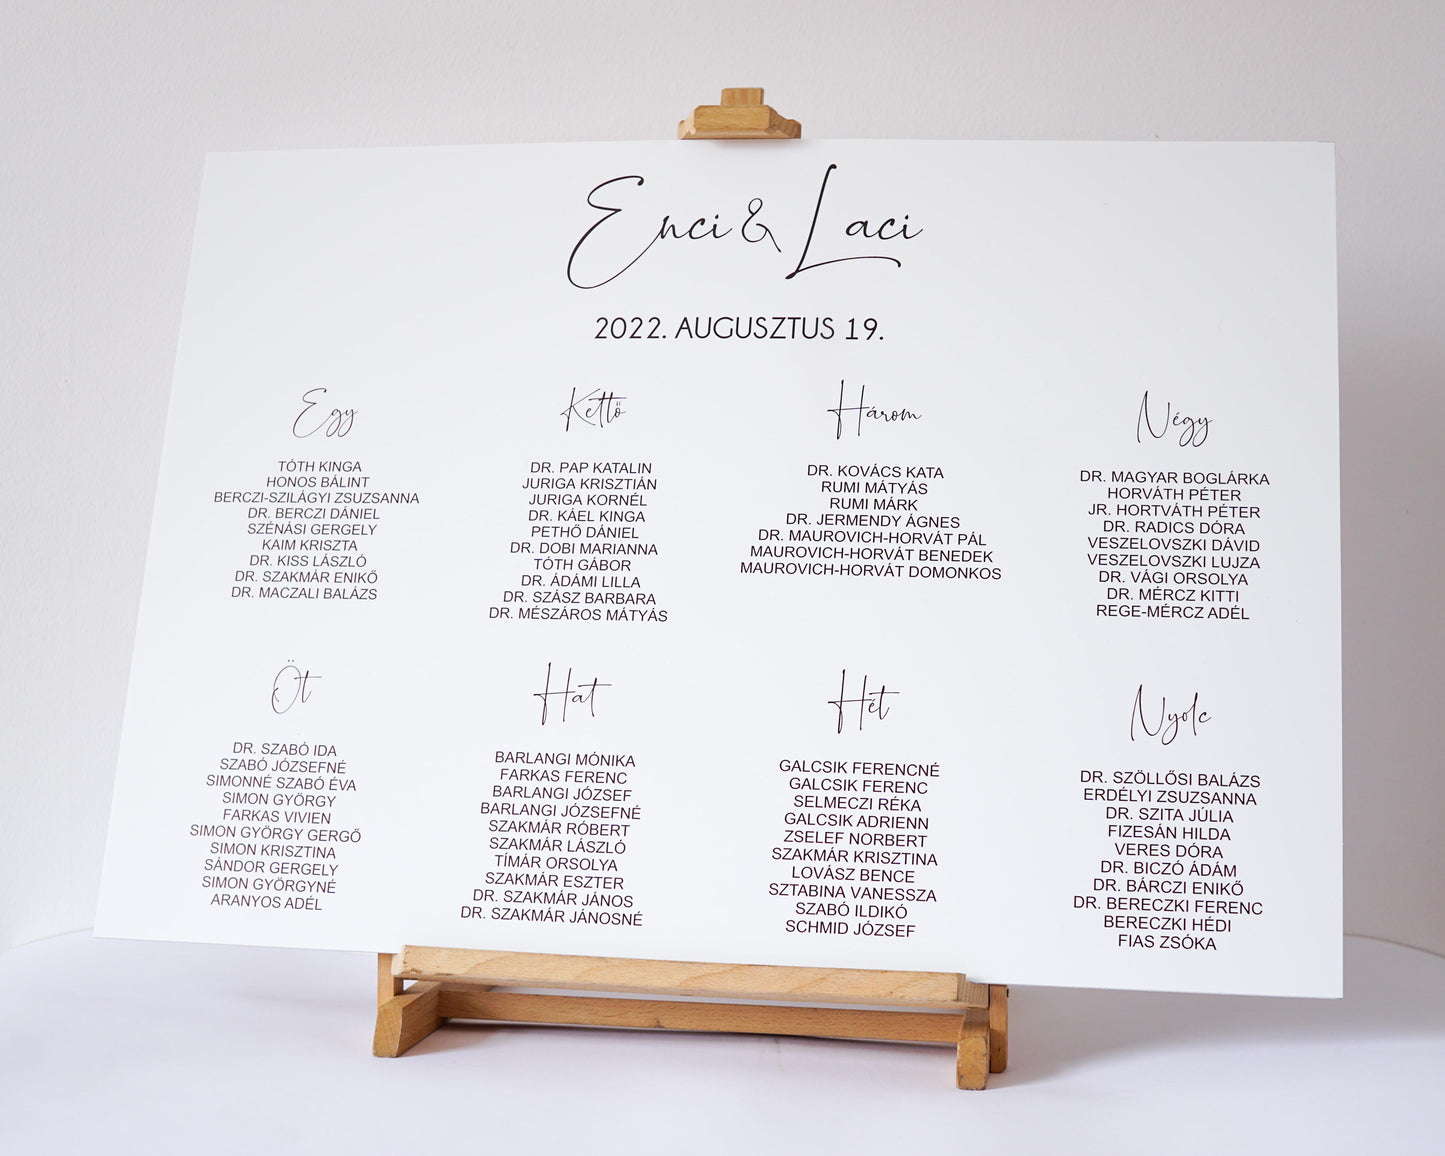 Enci & Laci
2022. AUGUSZTUS 19.
Egy
TÓTH KINGA
HONOS BÁLINT
BERCZI-SZILÁGYI ZSUZSANNA
DR. BERCZI DÁNIEL
SZÉNÁSI GERGELY
KAIM KRISZTA
DR. KISS LÁSZLÓ
DR. SZAKMÁR ENIKŐ
DR. MACZALI BALÁZS
Kettő
DR. PAP KATALIN
JURIGA KRISZTIÁN
JURIGA KORNÉL
DR. KÁEL KINGA
PETHŐ DÁNIEL
DR. DOBI MARIANNA
TÓTH GÁBOR
DR. ÁDÁMI LILLA
DR. SZÁSZ BARBARA
DR. MÉSZÁROS MÁTYÁS
Három
DR. KOVÁCS KATA
RUMI MÁTYÁS
RUMI MÁRK
DR. JERMENDY ÁGNES
DR. MAUROVICH-HORVÁT PÁL
MAUROVICH-HORVÁT BENEDEK
MAUROVICH-HORVÁT DOMONKOS
Négy
DR. MAGYAR BOGLÁRKA
HORVÁTH PÉTER
JR. HORTVÁTH PÉTER
DR. RADICS DÓRA
VESZELOVSZKI DÁVID
VESZELOVSZKI LUJZA
DR. VÁGI ORSOLYA
DR. MÉRCZ KITTI
REGE-MÉRCZ ADÉL
Öt
DR. SZABÓ IDA
SZABÓ JÓZSEFNÉ
SIMONNÉ SZABÓ ÉVA
SIMON GYÖRGY
FARKAS VIVIEN
SIMON GYÖRGY GERGŐ
SIMON KRISZTINA
SÁNDOR GERGELY
SIMON GYÖRGYNÉ
ARANYOS ADÉL
Hat
BARLANGI MÓNIKA
FARKAS FERENC
BARLANGI JÓZSEF
BARLANGI JÓZSEFNÉ
SZAKMÁR RÓBERT
SZAKMÁR LÁSZLÓ
TÍMÁR ORSOLYA
SZAKMÁR ESZTER
DR. SZAKMÁR JÁNOS
DR. SZAKMÁR JÁNOSNÉ
Hét
GALCSIK FERENCNÉ
GALCSIK FERENC
SELMECZI RÉKA
GALCSIK ADRIENN
ZSELEF NORBERT
SZAKMÁR KRISZTINA
LOVÁSZ BENCE
SZTABINA VANESSZA
SZABÓ ILDIKÓ
SCHMID JÓZSEF
Nyolc
DR. SZÖLLŐSI BALÁZS
ERDÉLYI ZSUZSANNA
DR. SZITA JÚLIA
FIZESÁN HILDA
VERES DÓRA
DR. BICZÓ ÁDÁM
DR. BÁRCZI ENIKŐ
DR. BERECZKI FERENC
BERECZKI HÉDI
FIAS ZSÓKA